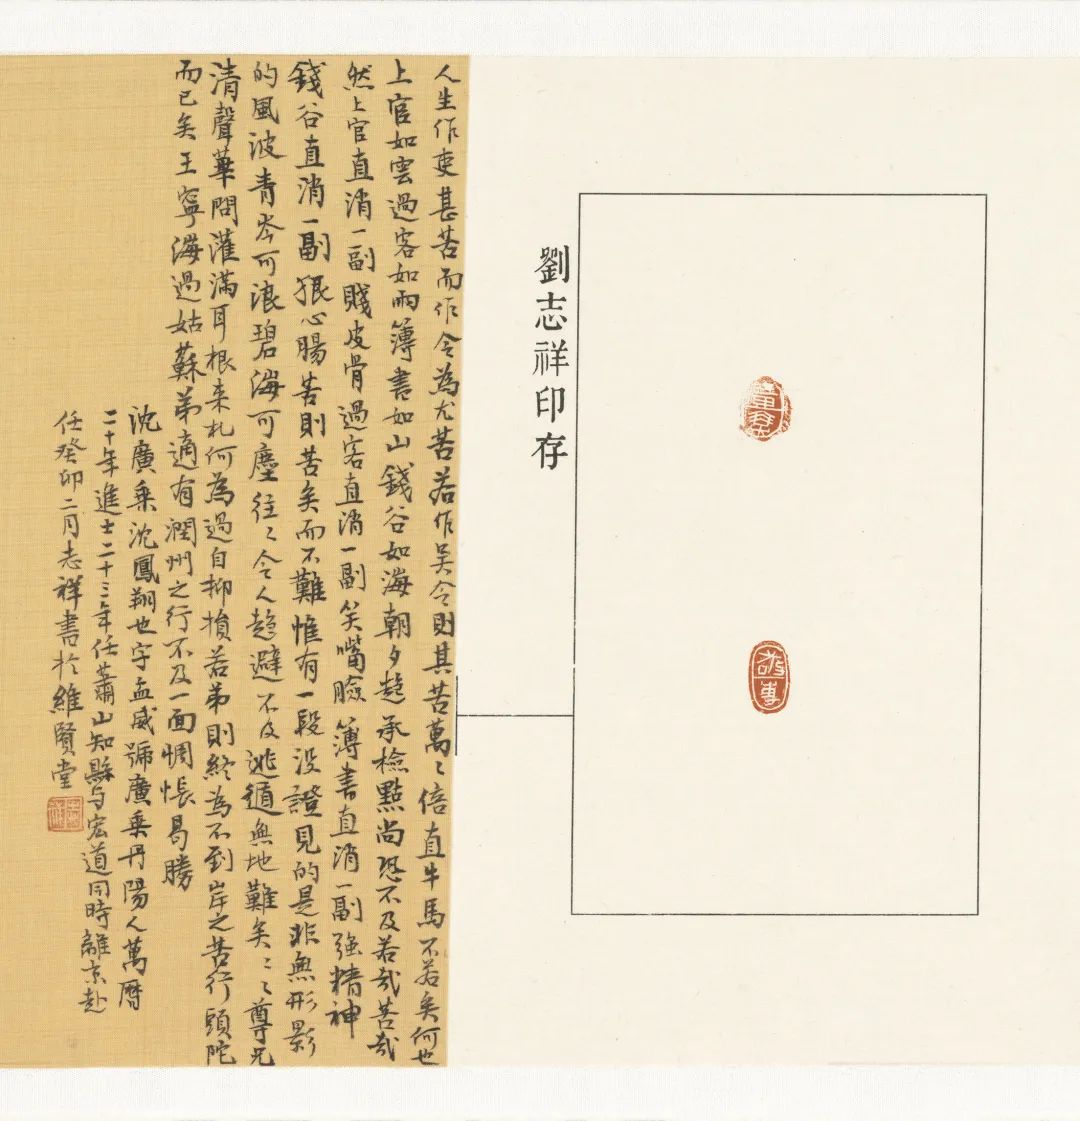 劉志祥印存
敬事
人生作吏甚苦而作令為尤苦若作吳令則其苦萬〻倍直牛馬不若矣何也
上官如雲過客如雨簿書如山錢谷如海朝夕趨承檢點尚恐不及若哉苦哉
然上官直消一副賤皮骨過客直消一副笑嘴臉簿書直消一副強精神
錢谷直消一副狠心腸苦則苦矣而不難惟有一段沒證見的是非無形影
的風波青岑可浪碧海可塵往〻令人趨避不及逃遁無地難矣〻〻尊兄
清聲華問灌滿耳根來札何為過自抑損若弟則終為不到岸之苦行頭陀
而已矣王寧海過姑蘇弟適有潤州之行不及一面惆悵曷勝
沈廣乗沈鳳翔也字孟威號廣乗丹陽人萬曆
二十年進士二十三年任蕭山知縣与宏道同時離京赴
任癸卯二月志祥書於維賢堂